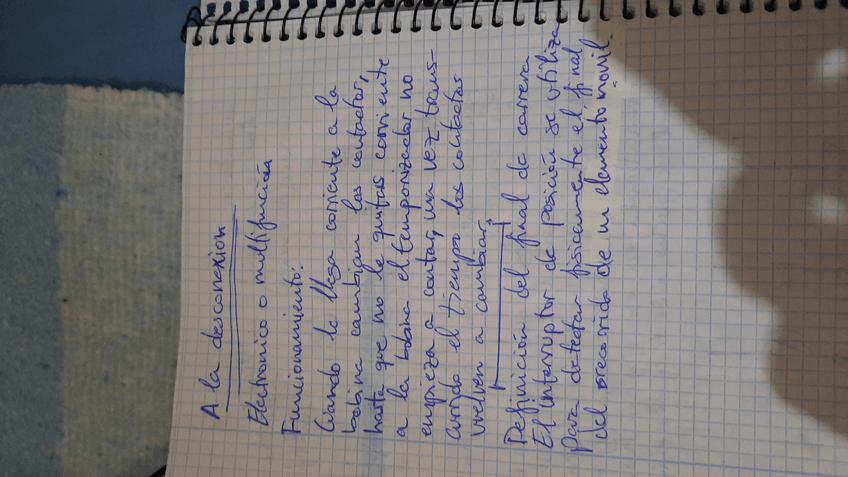 A la desconexion
Electronico o multifunción
Funcionamiento:
Cuando le llega corriente a la
bobina cambian los contactos,
hasta que no le quitas corriente
a la bobina el temporizador no
empieza a contar, una vez trans-
currido el tiempo los contactos
vuelven a cambiar.
Definición del final de carrera
El interruptor de posición se utiliza
para detectar físicamente el final
del recorrido de un elemento móvil.